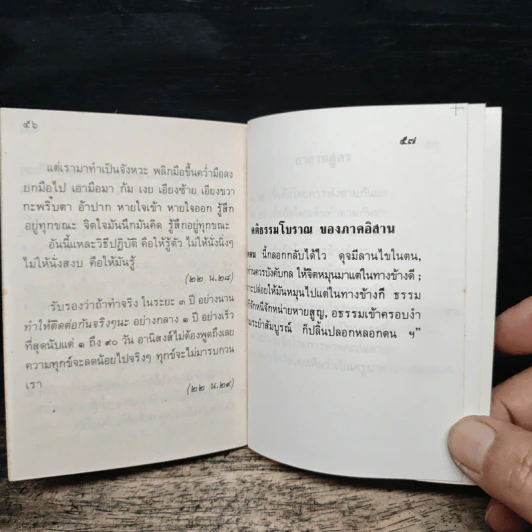 ๕๖
แต่เรามาทำเป็นจังหวะ พลิกมือขึ้นคว่ำมือลง
ยกมือไป เอามือมา ก้ม เงย เอียงซ้าย เอียงขวา
กะพริ้บตา อ้าปาก หายใจเข้า หายใจออก รู้สึก
อยู่ทุกขณะ จิตใจมันนึกมันคิด รู้สึกอยู่ทุกขณะ
อันนี้แหละวิธีปฏิบัติ คือให้รู้ตัว ไม่ให้นั่งนิ่งๆ
ไม่ให้นั่งสงบ คือให้มันรู้
(๒๒ น.๒๘)
รับรองว่าถ้าทำจริง ในระยะ ๓ ปี อย่างนาน
ทำให้ติดต่อกันจริงๆนะ อย่างกลาง ๑ ปี อย่างเร็ว
ที่สุดนับแต่ ๑ ถึง ๙๐ วัน อานิสงส์ไม่ต้องพูดถึงเลย
ความทุกข์จะลดน้อยไปจริงๆ ทุกข์จะไม่มารบกวน
เรา
(๒๒ น.๒๙)
๕๗
คติธรรมโบราณ ของภาคอิสาน
นี้กลอกกลับได้ไว ดุจมีลานไขในตน,
านควรบังคับกล ให้จิตหมุนมาแต่ในทางข้างดี ;
ะปล่อยให้มันหมุนไปแต่ในทางข้างกี ธรรม
ที่จักหนีจักหน่ายหายสูญ, อธรรมเข้าครอบงำ
ระยำสัมบูรณ์ ก็ปลิ้นปลอกหลอกตน ฯ”